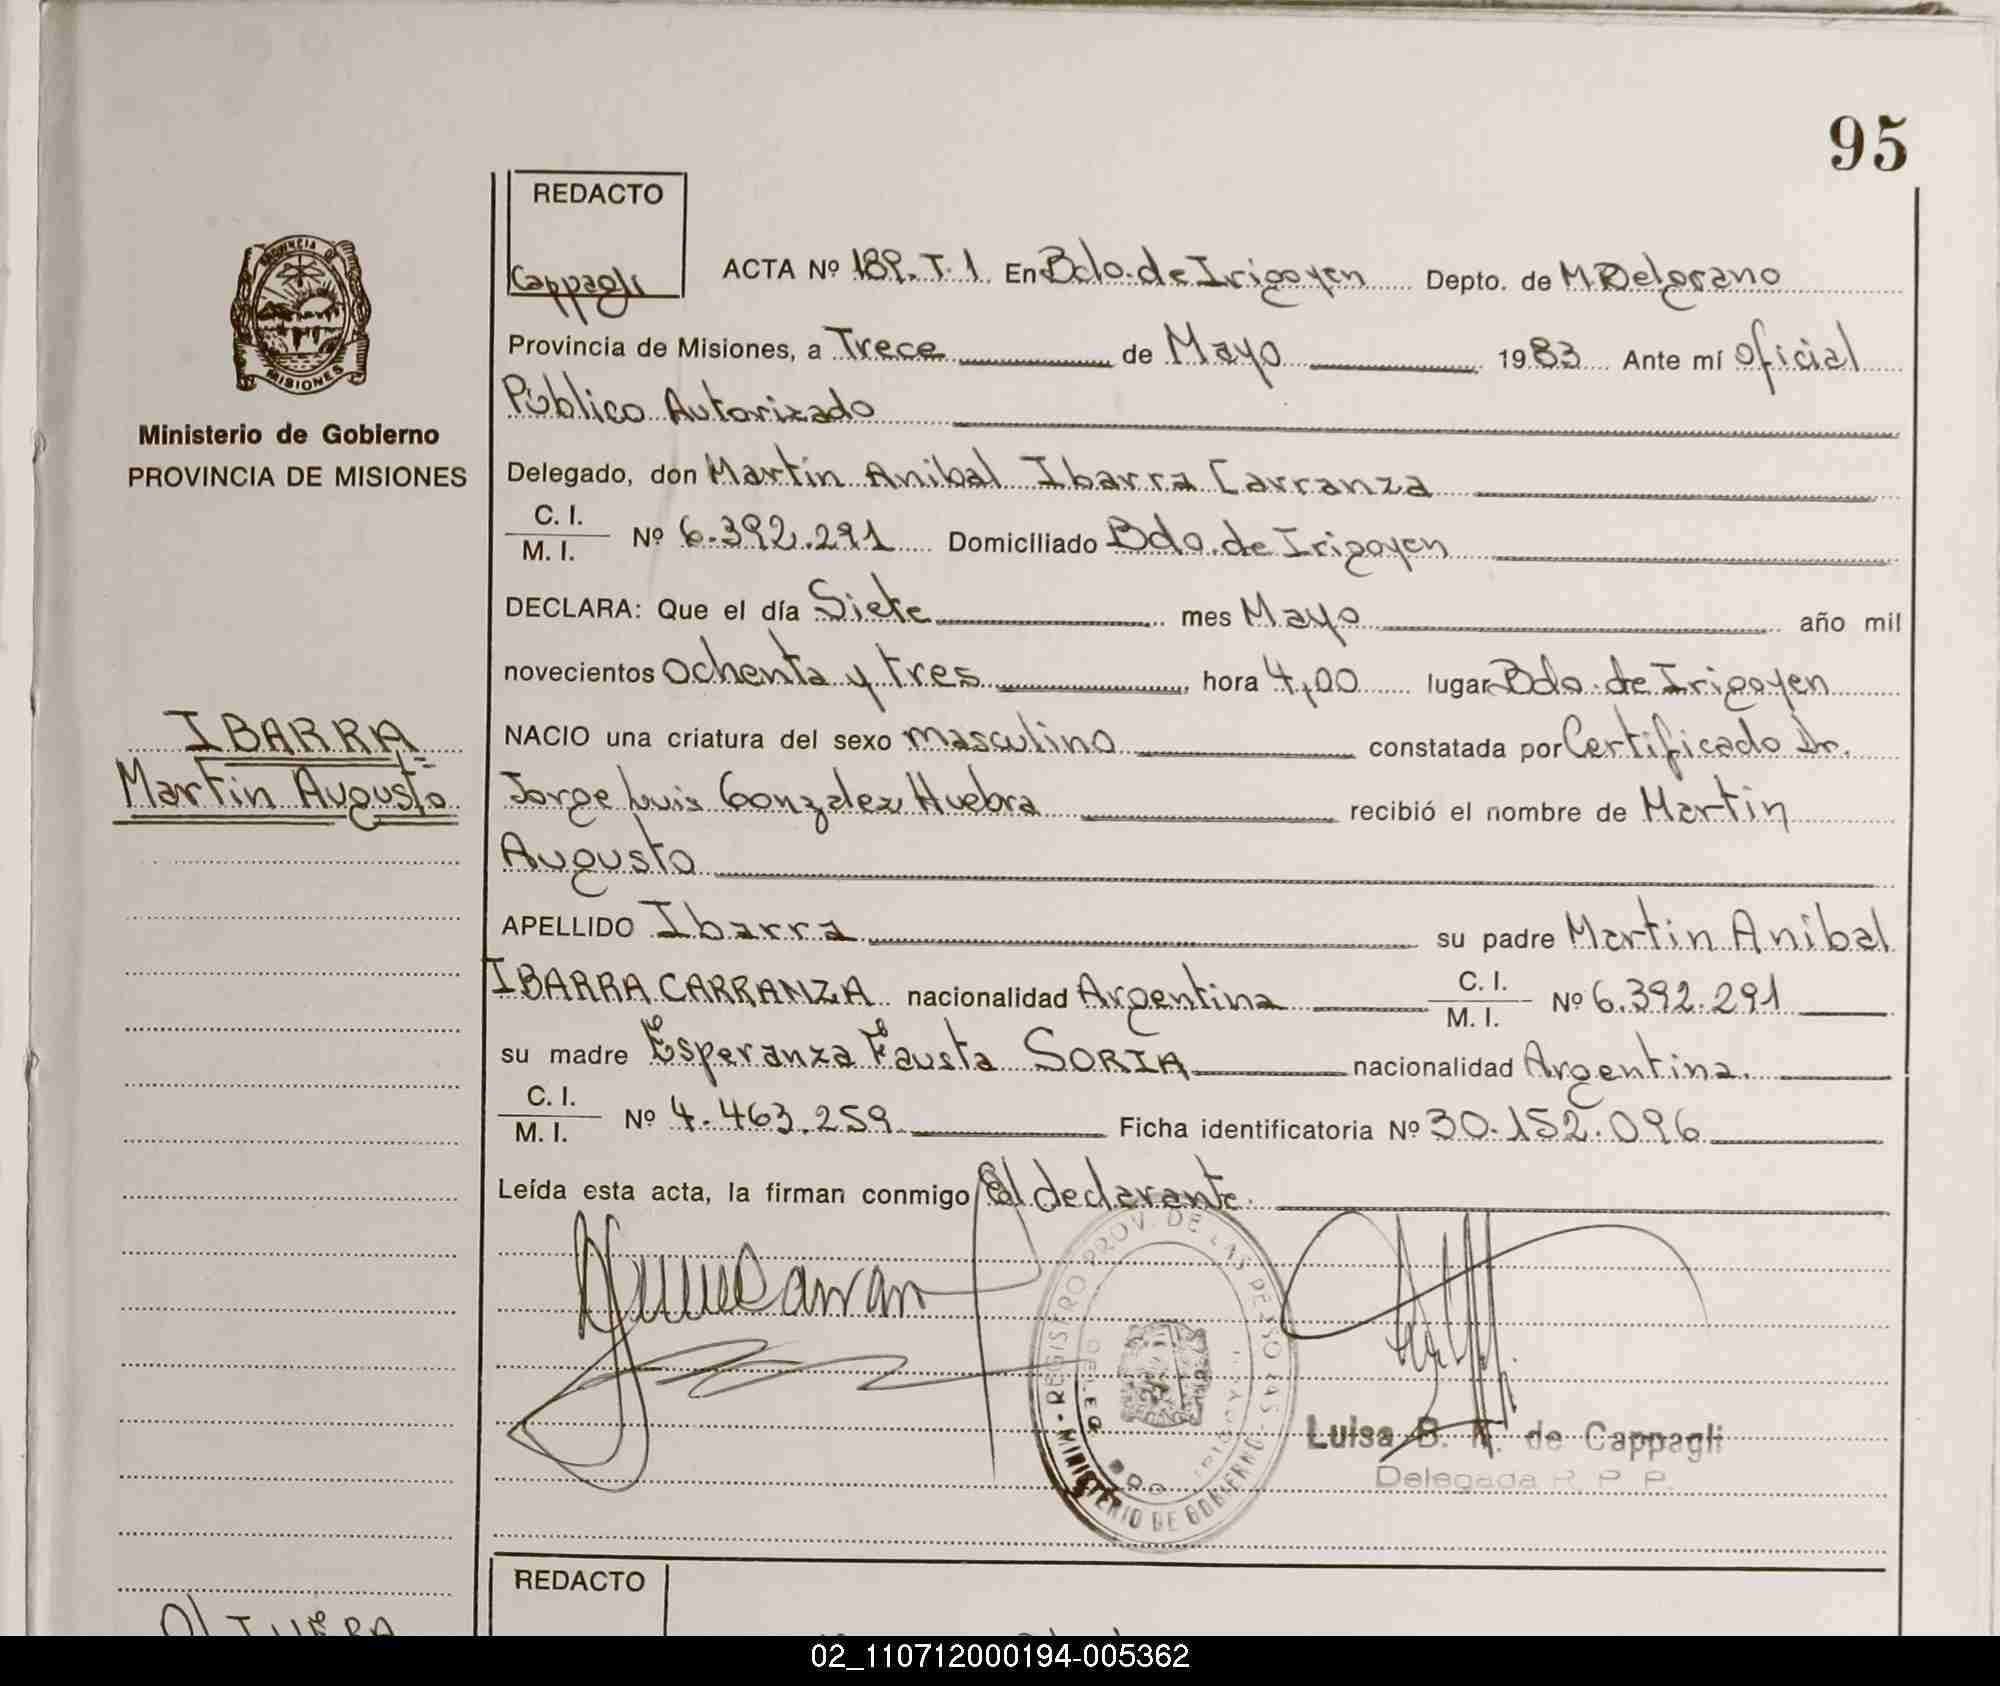 95
REDACTO
Cappagli
ACTA Nº 189. T. 1. En Bdo. de Irigoyen Depto. de M Belgrano
Provincia de Misiones, a Trece de Mayo 1983 Ante mí oficial
Público Autorizado
Delegado, don Martin Anibal Ibarra Carranza
C. I.
M. I.
Nº 6.392.291 Domiciliado Bdo. de Irigoyen
DECLARA: Que el día Siete mes Mayo año mil
novecientos ochenta y tres hora 4,00 lugar Bdo. de Irigoyen
NACIO una criatura del sexo masculino constatada por Certificado Dr.
Jorge Luis Gonzalez Huebra recibió el nombre de Martin
Augusto
APELLIDO Ibarra su padre Martin Anibal
IBARRA CARRANZA nacionalidad Argentina C. I.
M. I. Nº 6.392.291
su madre Esperanza Fausta SORIA nacionalidad Argentina.
C. I.
M. I.
Nº 4.463.259 Ficha identificatoria Nº 30.152.096
Leída esta acta, la firman conmigo el declarante.
PROVINCIA DE
MISIONES
Ministerio de Gobierno
PROVINCIA DE MISIONES
IBARRA
Martin Augusto
REGISTRO PROV. DE LAS PERSONAS
MINISTERIO DE GOBIERNO
Luisa B. de Cappagli
Delegada R. P. P.
REDACTO
02_110712000194-005362